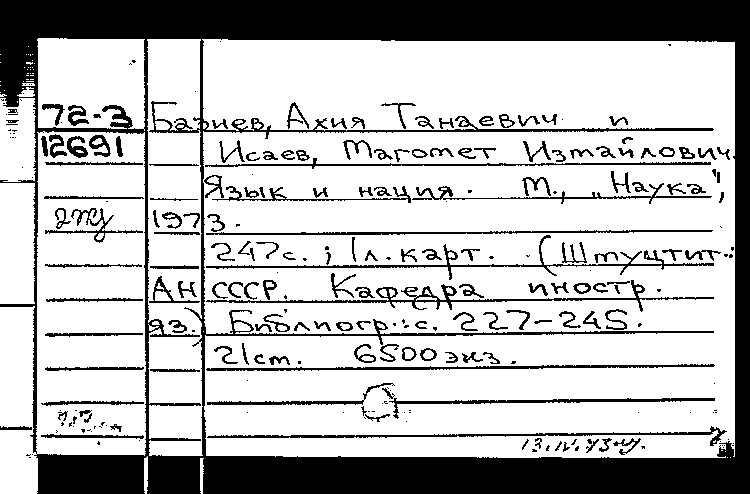 72-3 Базиев, Ахия Танаевич и
12691 Исаев, Магомет Измайлович.
Язык и нация. М., „Наука",
1973.
247с.; 1л. карт. (Штуцтит.:
АН СССР. Кафедра иностр.
яз.) Библиогр.: с. 227-245.
21cm. 6500 экз.
13.IV.73-